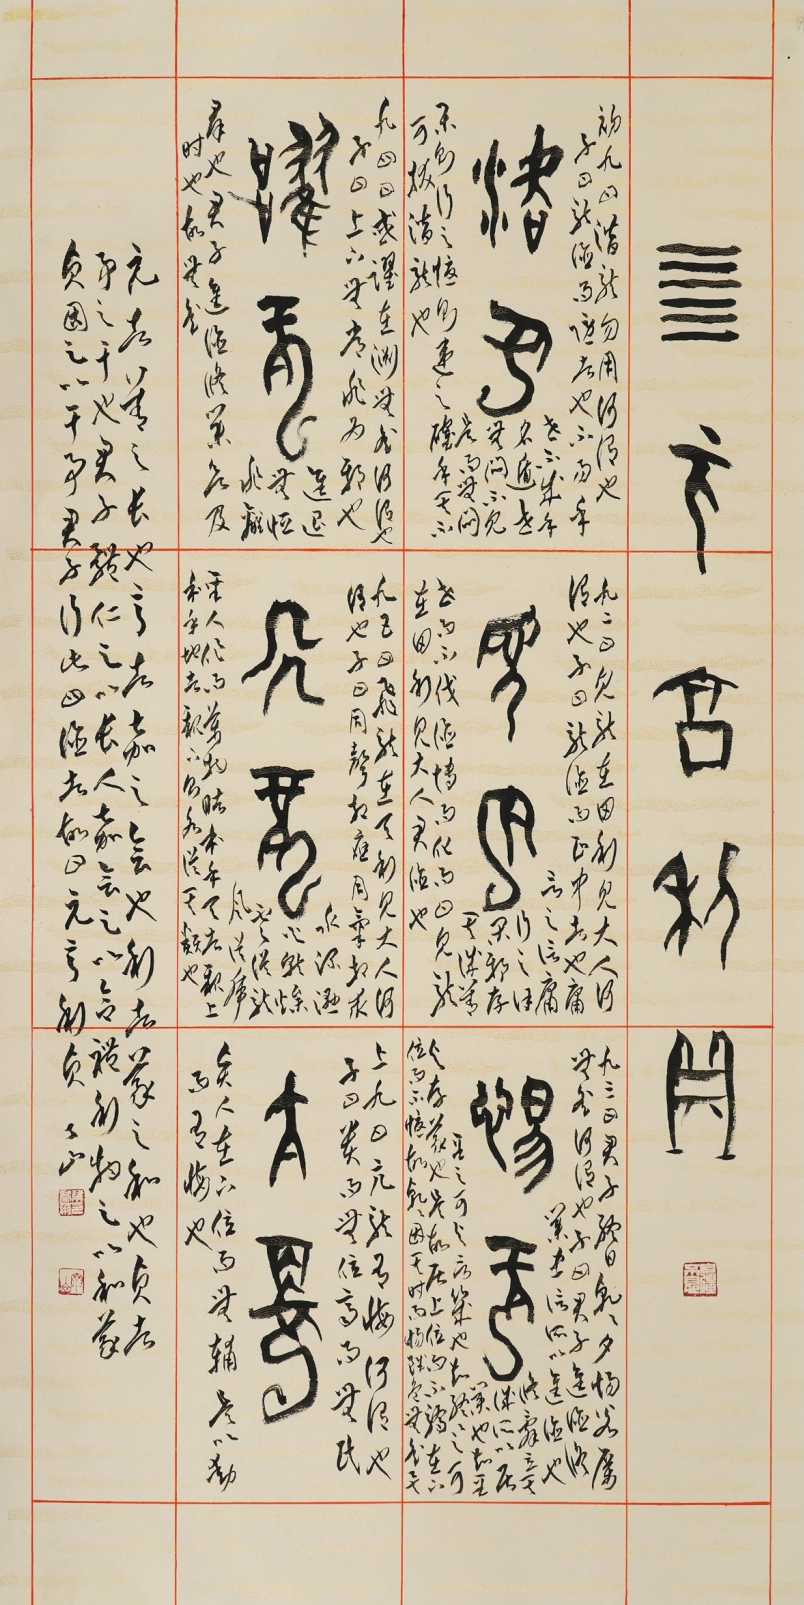 元亨利貞
潛龍
初九曰潛龍勿用何謂也
子曰龍德而隱者也不易乎
世不成乎
名遁世
無悶不見
是而無悶
樂則行之憂則違之確乎其不
可拔潛龍也
見龍
九二曰見龍在田利見大人何
謂也子曰龍德而正中者也庸
言之信庸
行之謹
閑邪存
其誠善
世而不伐德博而化易曰見龍
在田利見大人君德也
惕龍
九三曰君子終日乾乾夕惕若厲
無咎何謂也子曰君子進德修
業忠信所以進德也
修辭立其
誠所以居
業也知至
至之可與言幾也知終終之可
與存義也是故居上位而不驕在下
位而不憂故乾乾因其時而惕雖危無咎矣
躍龍
九四曰或躍在淵無咎何謂也
子曰上下無常非為邪也
進退
無恒
非離
群也君子進德修業欲及
時也故無咎
飛龍
九五曰飛龍在天利見大人何
謂也子曰同聲相應同氣相求
水流濕
火就燥
雲從龍
風從虎
聖人作而萬物睹本乎天者親上
本乎地者親下則各從其類也
亢龍
上九曰亢龍有悔何謂也
子曰貴而無位高而無民
賢人在下位而無輔是以動
而有悔也
元者善之長也亨者嘉之會也利者義之和也貞者
事之干也君子體仁足以長人嘉會足以合禮利物足以和義
貞固足以干事君子行此四德者故曰元亨利貞